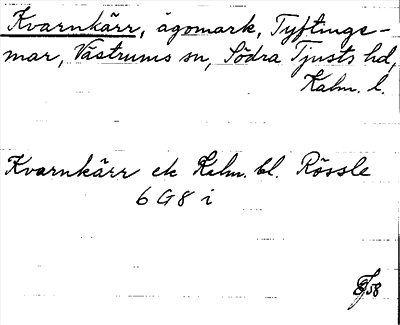 Kvarnkärr, ägomark, Tyftinge-
mar, Västrums sn, Södra Tjusts hd,
Kalm. l.
Kvarnkärr ek Kalm. bl. Rössle
6 G 8 i